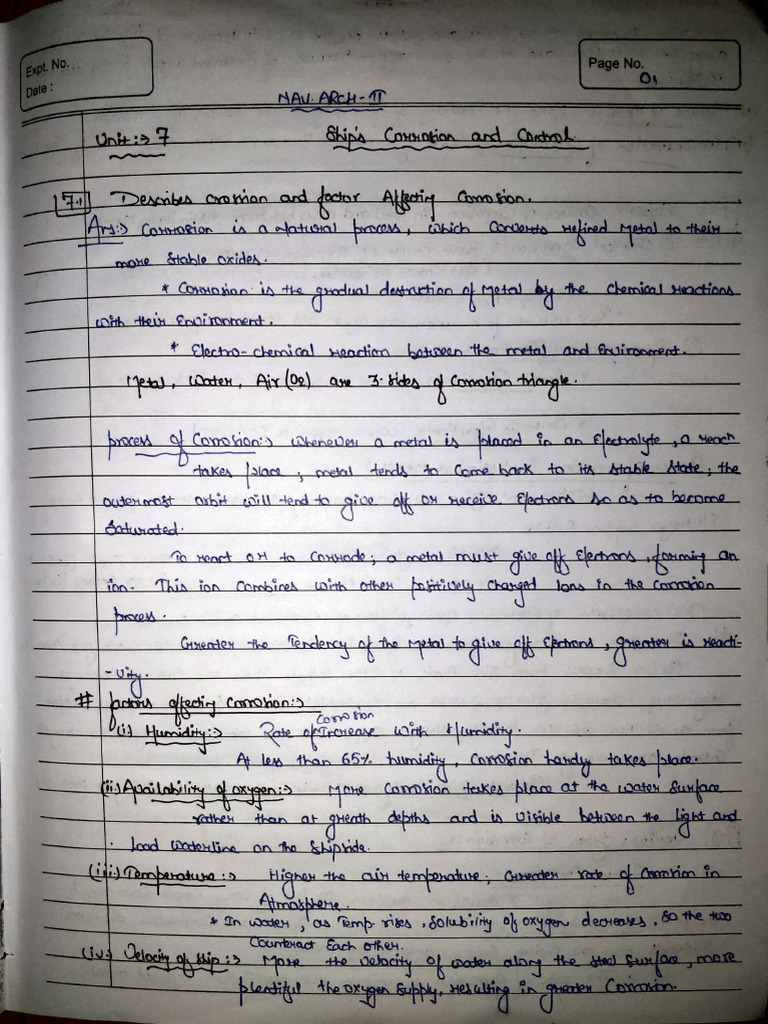 Expt. No.
Date :
Page No.
01
NAV. ARCH-II
Unit:> 7 Ship's Corrosion and Control.
7.1 Describes crossion and factor Affecting Corrosion.
Ans:> Corrosion is a Natural process, which Converts refined Metal to their
more Stable oxides.
* Corrosion is the gradual destruction of Metal by the chemical reactions
with their Environment.
* Electro-chemical reaction between the metal and Environment.
Metal, Water, Air (O2) are 3-sides of Corrosion triangle.
process of Corrosion:> Whenever a metal is placed in an Electrolyte, a reach
takes place, metal tends to Come back to its Stable State; the
outermost orbit will tend to give off or receive Electrons so as to become
Saturated.
To react or to Corrode; a metal must give off Electrons, forming an
ion. This ion Combines with other positively charged Ions in the corrosion
process.
Greater the Tendency of the Metal to give off Electrons, greater is reacti-
-vity.
# factors affecting Corrosion:>
(i) Humidity:> Rate of Corrosion Increase with Humidity.
At less than 65% humidity, Corrosion hardly takes place.
(ii) Availability of oxygen:> More Corrosion takes place at the water Surface
rather than at greath depths and is visible between the light and
load waterline on the Shipside.
(iii) Temperature:> Higher the air temperature; Greater rate of Corrosion in
Atmosphere.
* In water, as Temp. rises, Solubility of oxygen decreases, so the two
Counteract Each other.
(iv) Velocity of ship:> More the velocity of water along the steel surface, more
plentiful the oxygen supply, resulting in greater Corrosion.